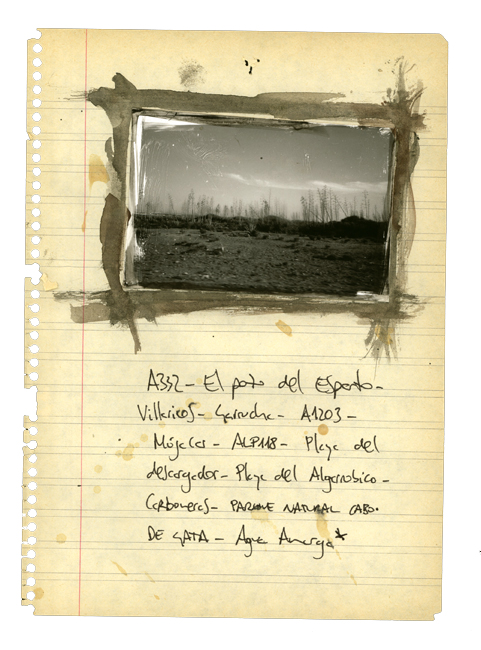 A332- El pozo del Esparto-
Villaricos- Garrucha- A1203-
Mójacar- ALP118- Playa del
descargador- Playa del Algarrobico-
Carboneras- PARQUE NATURAL CABO.
DE GATA- Agua Amarga*